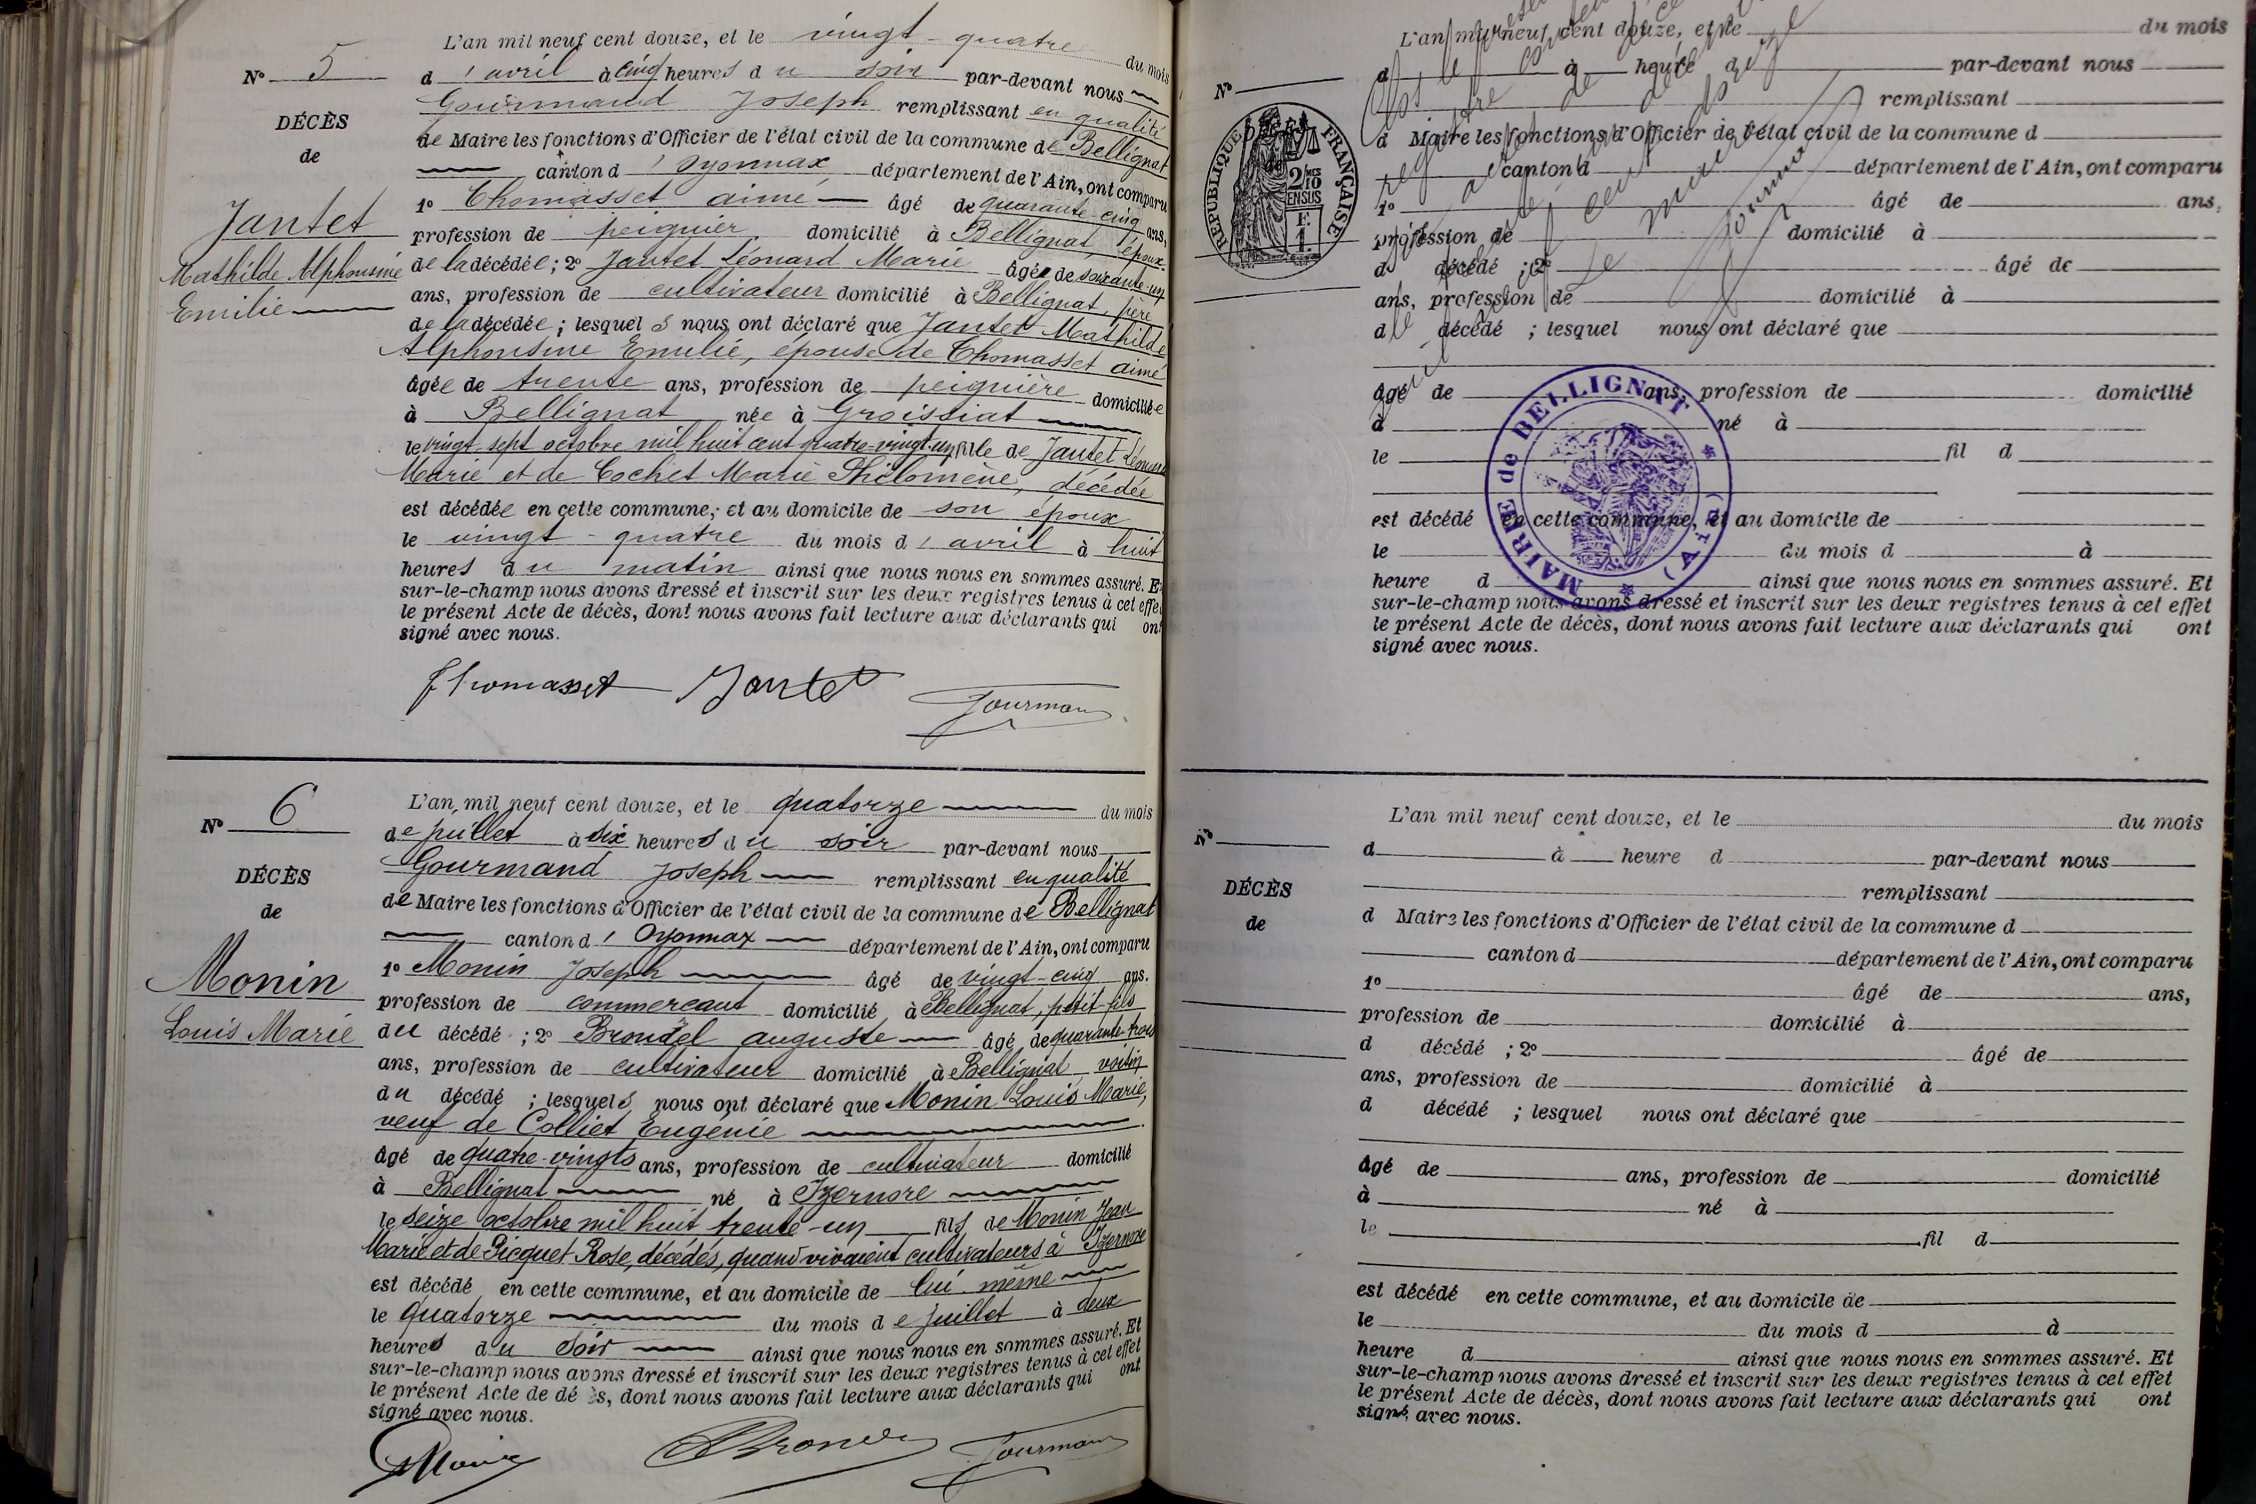 L'an mil neuf cent douze, et le vingt-quatre du mois
N° 5
d'avril à cinq heures du soir par-devant nous
Gourmand Joseph remplissant en qualité
DÉCÈS
de Maire les fonctions d'Officier de l'état civil de la commune de Bellignat
de
canton d'Oyonnax département de l'Ain, ont comparu
1° Thomasset aimé âgé de quarante-cinq ans,
Jantet
profession de peignier domicilié à Bellignat, époux
Mathilde Alphonsine
de la décédée; 2° Jantet Léonard Marie âgé de soixante-un
Emilie
ans, profession de cultivateur domicilié à Bellignat, père
de la décédée; lesquels nous ont déclaré que Jantet Mathilde
Alphonsine Emilie, épouse de Thomasset aimé
âgée de trente ans, profession de peignière domiciliée
à Bellignat née à Groissiat
le vingt-sept octobre mil huit cent quatre-vingt-un fille de Jantet Léonard
Marie et de Cochet Marie Philomène, décédée
est décédée en cette commune, et au domicile de son époux
le vingt-quatre du mois d'avril à huit
heures du matin ainsi que nous nous en sommes assuré. Et
sur-le-champ nous avons dressé et inscrit sur les deux registres tenus à cet effet
le présent Acte de décès, dont nous avons fait lecture aux déclarants qui ont
signé avec nous.
Thomasset Jantet Gourmand
L'an mil neuf cent douze, et le quatorze du mois
N° 6
de juillet à six heures du soir par-devant nous
Gourmand Joseph remplissant en qualité
DÉCÈS
de Maire les fonctions d'Officier de l'état civil de la commune de Bellignat
de
canton d'Oyonnax département de l'Ain, ont comparu
1° Monin Joseph âgé de vingt-cinq ans.
Monin
profession de commerçant domicilié à Bellignat, petit-fils
Louis Marie
du décédé; 2° Brondel auguste âgé de quarante-trois
ans, profession de cultivateur domicilié à Bellignat, voisin
du décédé; lesquels nous ont déclaré que Monin Louis Marie,
veuf de Colliet Eugénie
âgé de quatre-vingts ans, profession de cultivateur domicilié
à Bellignat né à Izernore
le seize octobre mil huit trente-un fils de Monin Jean
Marie et de Picquet Rose, décédés, quand vivaient cultivateurs à Izernore
est décédé en cette commune, et au domicile de lui même
le quatorze du mois de juillet à deux
heures du soir ainsi que nous nous en sommes assuré. Et
sur-le-champ nous avons dressé et inscrit sur les deux registres tenus à cet effet
le présent Acte de dé ès, dont nous avons fait lecture aux déclarants qui ont
signé avec nous.
Monin Brondel Gourmand
L'an mil neuf cent douze, et le du mois
N°
d à heure d par-devant nous
remplissant
d Maire les fonctions d'Officier de l'état civil de la commune d
canton d département de l'Ain, ont comparu
1° âgé de ans,
profession de domicilié à
d décédé; 2° âgé de
ans, profession de domicilié à
d décédé; lesquel nous ont déclaré que
âgé de ans, profession de domicilié
à né à
le fil d
est décédé en cette commune, et au domicile de
le du mois d à
heure d ainsi que nous nous en sommes assuré. Et
sur-le-champ nous avons dressé et inscrit sur les deux registres tenus à cet effet
le présent Acte de décès, dont nous avons fait lecture aux déclarants qui ont
signé avec nous.
registre
Le maire
Gourmand
RÉPUBLIQUE FRANÇAISE
2/10 EN SUS
F.
1.
MAIRIE de BELLIGNAT
(Ain)
L'an mil neuf cent douze, et le du mois
N°
d à heure d par-devant nous
remplissant
DÉCÈS
d Maire les fonctions d'Officier de l'état civil de la commune d
de
canton d département de l'Ain, ont comparu
1° âgé de ans,
profession de domicilié à
d décédé; 2° âgé de
ans, profession de domicilié à
d décédé; lesquel nous ont déclaré que
âgé de ans, profession de domicilié
à né à
le fil d
est décédé en cette commune, et au domicile de
le du mois d à
heure d ainsi que nous nous en sommes assuré. Et
sur-le-champ nous avons dressé et inscrit sur les deux registres tenus à cet effet
le présent Acte de décès, dont nous avons fait lecture aux déclarants qui ont
signé avec nous.